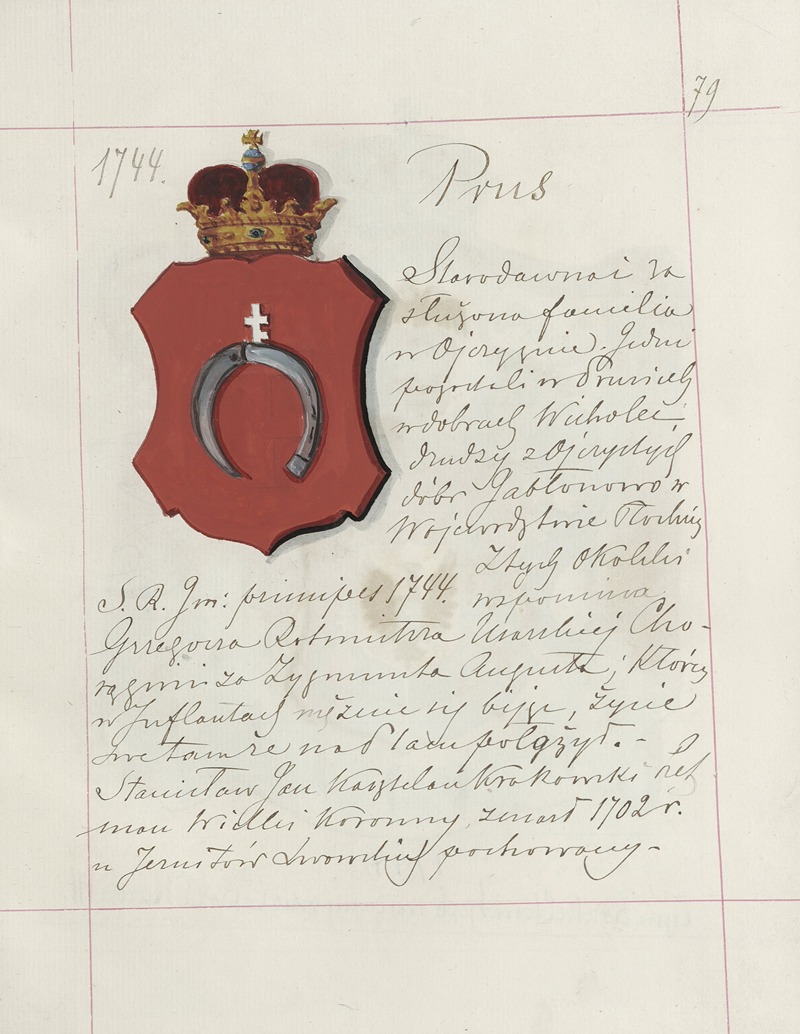 79
1744.
Prus
Starodawna i za
służona familia
w Ojczyznie. Jedni
w Prusiech
w dobrach Wicholec
drudzy z Ojczystych
dóbr Jabłonowo w
Wojewodztwie Płockim
Z tych Okolski
wspomina
S. R. Im: principes 1744.
Grzegorza Rotmistrza Usarskiej Cho-
rągwi za Zygmunta Augusta; który
w Inflantach mężnie się bijąc, życie
swe tamże położył. -
Stanisław Jan Kasztelan Krakowski Het
man Wielki Koronny, zmarł 1702 r.
u Jezuitów Lwowskich pochowany -